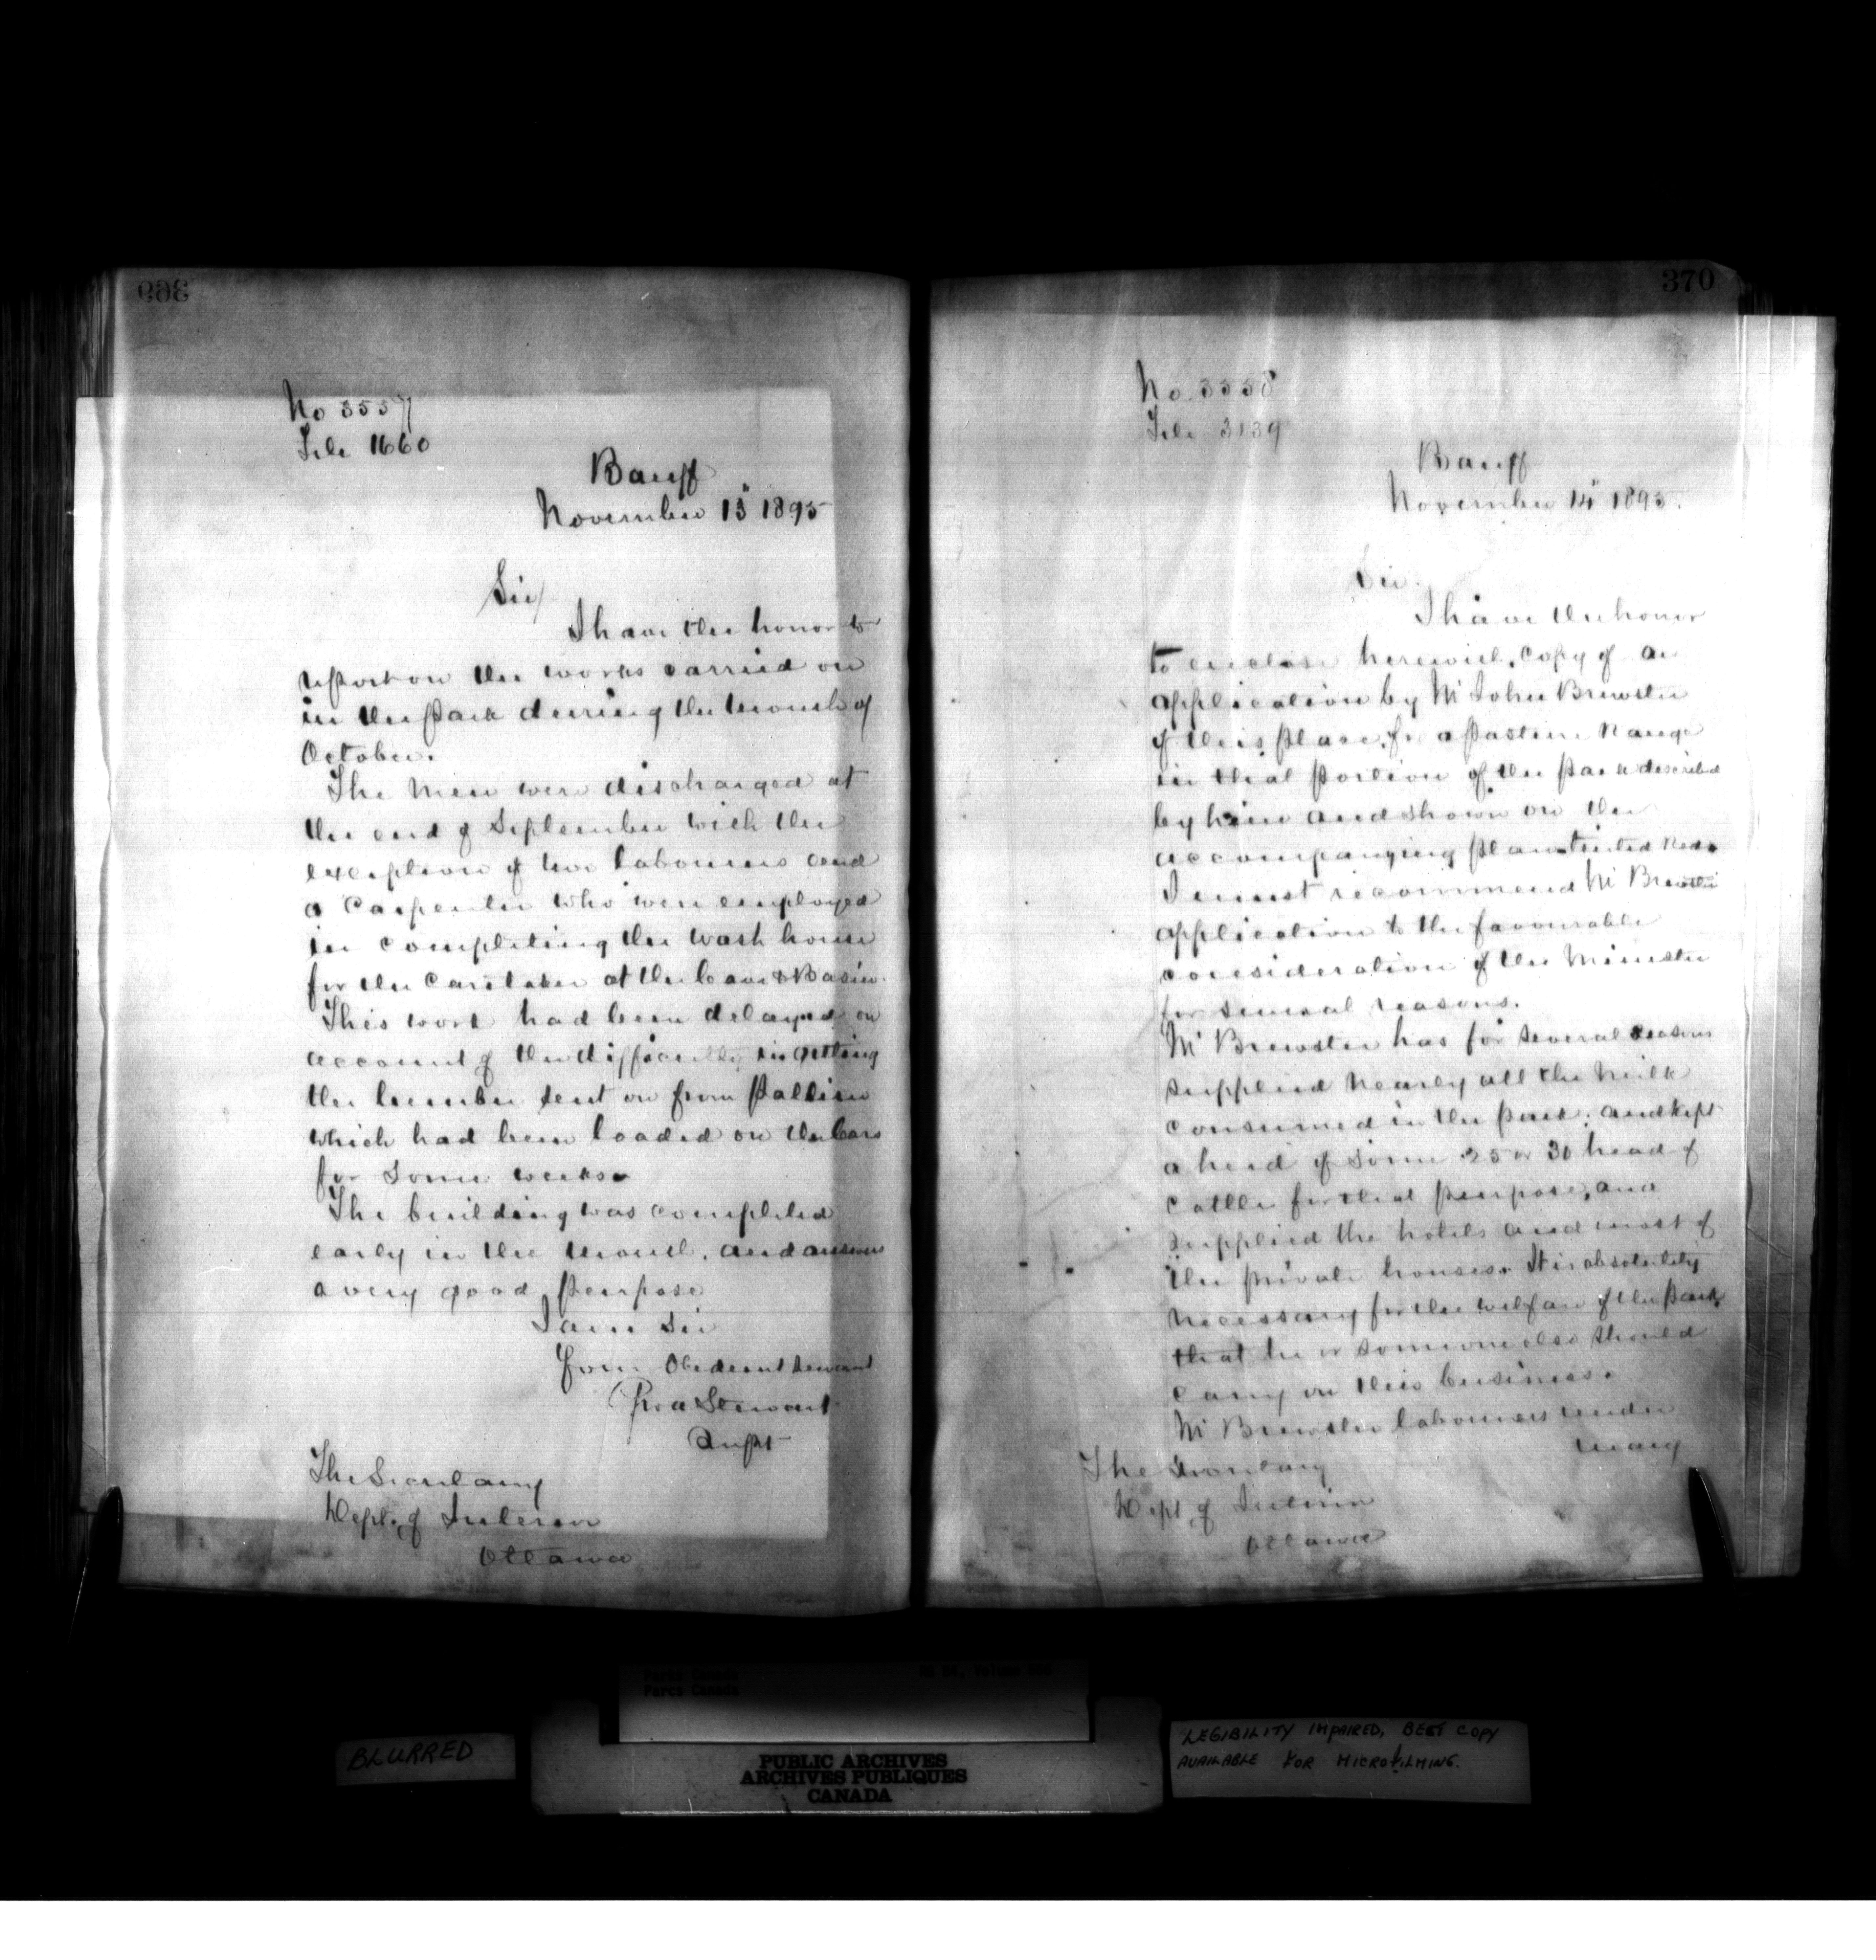 369
No 3557
File 1660
Banff
November 13" 1895
Sir/
I have the honor to
report on the works carried on
in the Park during the month of
October.
The men were discharged at
the end of September with the
exception of two labourers and
a Carpenter who were employed
in completing the wash house
for the Caretaker at the Cave & Basin.
This work had been delayed on
account of the difficulty in getting
the lumber sent on from Palliser
which had been loaded on the Cars
for some weeks.
The building was completed
early in the month, and answers
a very good purpose
I am Sir
Your Obedient Servant
Geo A Stewart
Supt
The Secretary
Dept. of Interior
Ottawa
370
No. 3558
File 3139
Banff
November 14" 1895.
Sir.
I have the honor
to enclose herewith, copy of an
application by Mr John Brewster
of this place, for a pasture Range
in that portion of the Park described
by him and shown on the
accompanying plan tinted Red.
I must recommend Mr Brewster
application to the favourable
consideration of the Minister
for several reasons.
Mr Brewster has for several seasons
supplied nearly all the milk
consumed in the Park; and kept
a herd of some 25 or 30 head of
cattle for that purpose, and
supplied the hotels and most of
the private houses. It is absolutely
necessary for the welfare of the Park
that he or someone else should
carry on this business.
Mr Brewster labourers under
many
The Secretary
Dept. of Interior
Ottawa
Parks Canada
Parcs Canada
BLURRED
PUBLIC ARCHIVES
ARCHIVES PUBLIQUES
CANADA
LEGIBILITY IMPAIRED, BEST COPY
AVAILABLE FOR MICROFILMING.